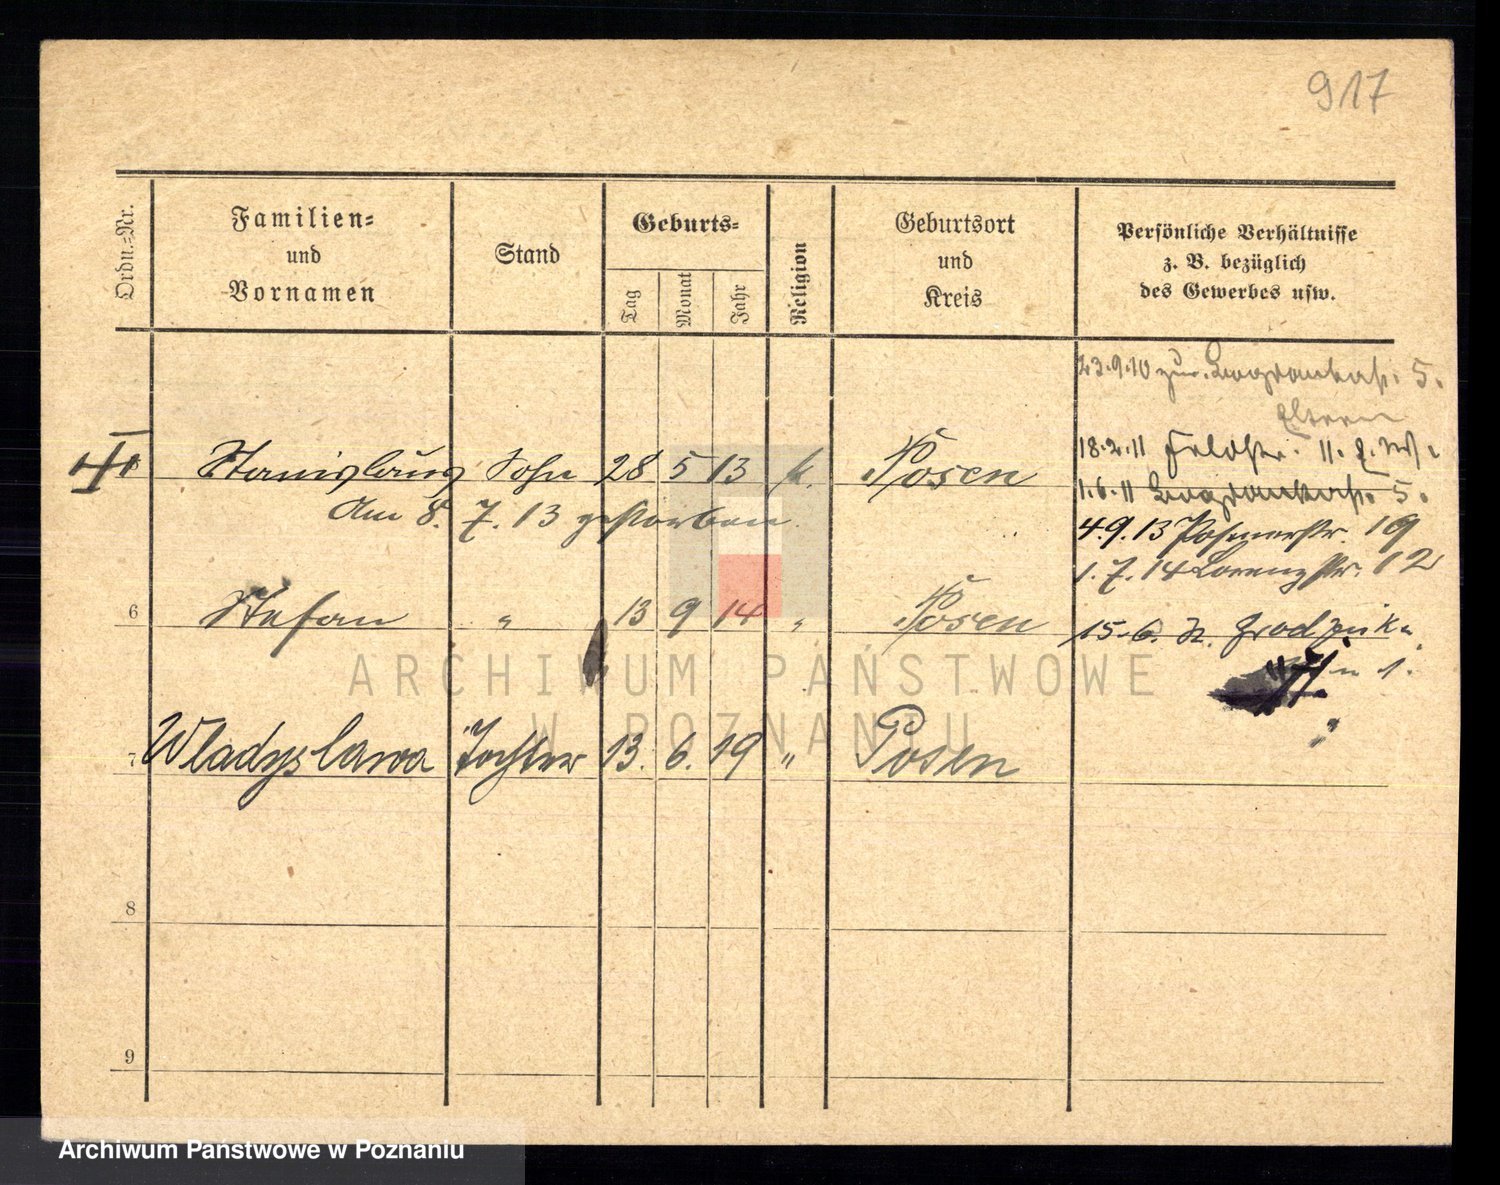 917
Ordn.=Nr.
Familien=
und
Vornamen
Stand
Geburts=
Tag
Monat
Jahr
Religion
Geburtsort
und
Kreis
Persönliche Verhältnisse
z. B. bezüglich
des Gewerbes usw.
23.9.10 zur. 5.
Eltern
18.2.11 Feldstr. 11.
1.6.11 5.
4.9.13 Posenerstr. 19
1.7.14 Lorenzstr. 12
Stanislaus Sohn 28 5 13 k. Posen
Am 8. 7. 13 gestorben.
6 Stefan " 13 9 14 " Posen
15.6.
7 Wladyslawa Tochter 13. 6. 19 " Posen
8
9
ARCHIWUM PAŃSTWOWE
W POZNANIU
Archiwum Państwowe w Poznaniu